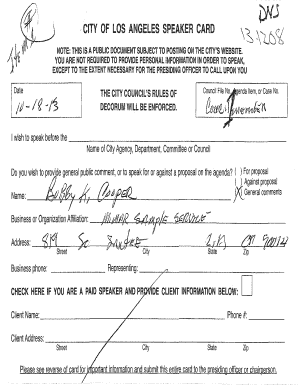 DNS
CITY OF LOS ANGELES SPEAKER CARD
131208
NOTE: THIS IS A PUBLIC DOCUMENT SUBJECT TO POSTING ON THE CITY'S WEBSITE.
YOU ARE NOT REQUIRED TO PROVIDE PERSONAL INFORMATION IN ORDER TO SPEAK,
EXCEPT TO THE EXTENT NECESSARY FOR THE PRESIDING OFFICER TO CALL UPON YOU
Date
10-18-13
THE CITY COUNCIL'S RULES OF
DECORUM WILL BE ENFORCED.
Council File No., Agenda Item, or Case No.
I wish to speak before the
Name of City Agency, Department, Committee or Council
Do you wish to provide general public comment, or to speak for or against a proposal on the agenda?
( ) For proposal
( ) Against proposal
General comments
Name: Bobby H. Cooper
Business or Organization Affiliation: Sample Service
Address: 819 So
Street City State Zip
Business phone: Representing:
CHECK HERE IF YOU ARE A PAID SPEAKER AND PROVIDE CLIENT INFORMATION BELOW:
Client Name: Phone #:
Client Address:
Street City State Zip
Please see reverse of card for important information and submit this entire card to the presiding officer or chairperson.